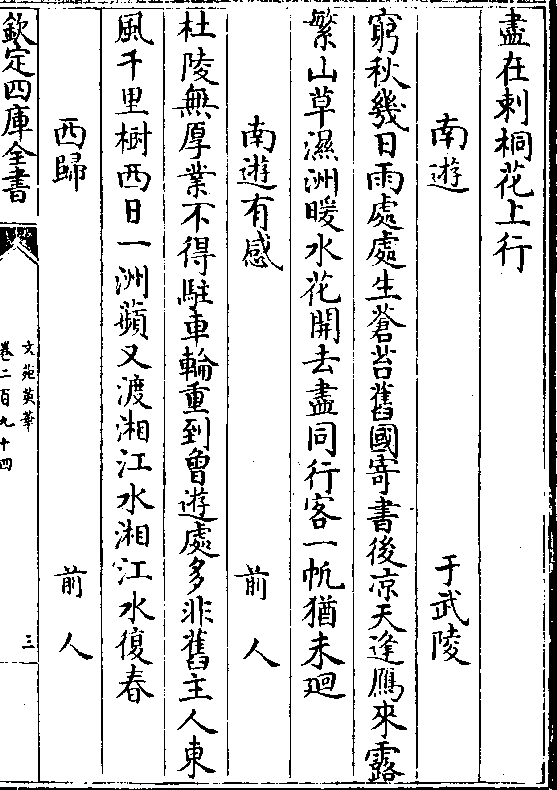 盡在刺桐花上行
南遊　于武陵
窮秋幾日雨處處生蒼苔舊國寄書後凉天逢鴈來露
繁山草濕洲暖水花開去盡同行客一帆猶未廻
南遊有感　前人
杜陵無厚業不得駐車輪重到曾遊處多非舊主人東
風千里樹西日一洲蘋又渡湘江水湘江水復春
西歸　前人
欽定四庫全書
文苑英華
卷二百九十四
三